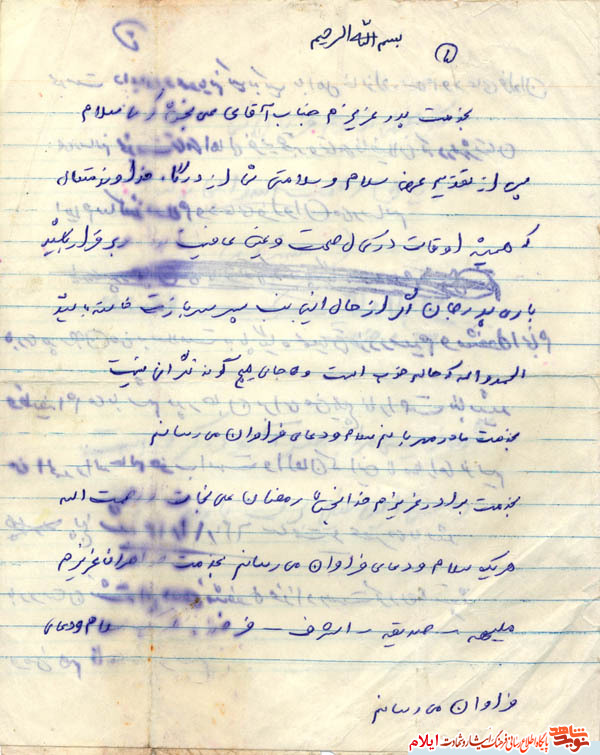 بسم الله الرحیم
۱
بخدمت پدر عزیزم جناب آقای علی سلام
پس از تقدیم عرض سلام و سلامتی از درگاه خداوند متعال
که همیشه اوقات در کمال صحت و عین عافیت برقرار باشید
باری پدر جان اگر از حال اینجانب پسر سربازت خواسته باشید
الحمدو الله که حالم خوب است و جای هیچ گونه نگرانی نیست
بخدمت مادر مهربانم سلام و دعای فراوان می رسانم
بخدمت برادر عزیزم خدابخش رمضان علی نجات الله
هریک سلام و دعای فراوان می رسانم بخدمت خواهران عزیزم
ملیحه – صدیقه – اشرف – سلام و دعای
فراوان می رسانم
نوید شاهد
پایگاه اطلاع رسانی فرهنگ ایثار و شهادت ایلام